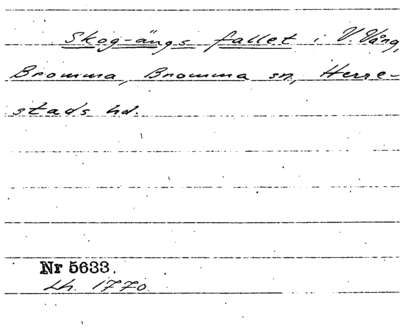 Skog-ängs fallet i V. Vång,
Bromma, Bromma sn, Herre-
stads hd.
Nr 5633.
Lh. 1770.